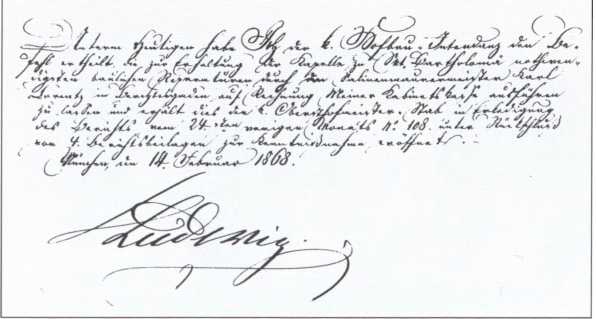 Unterm Heutigen habe Ich der k. Hofbau-Intendanz den Be-
fehl ertheilt die zur Erhaltung der Kapelle zu Skt. Bartholomä nothwen-
digsten baulichen Reparaturen durch den Salinenmaurermeister Karl
in Berchtesgaden auf Rechnung Meiner Kabinetskasse ausführen
zu lassen und erhält dies der k. Obersthofmeister-Stab in Erledigung
des Berichts vom 24ten vorigen Monats No. 108. unter Rückschluß
von 4. Berichtsbeilagen zur Kenntnißnahme eröffnet.
München, den 14. Februar 1868.
Ludwig.